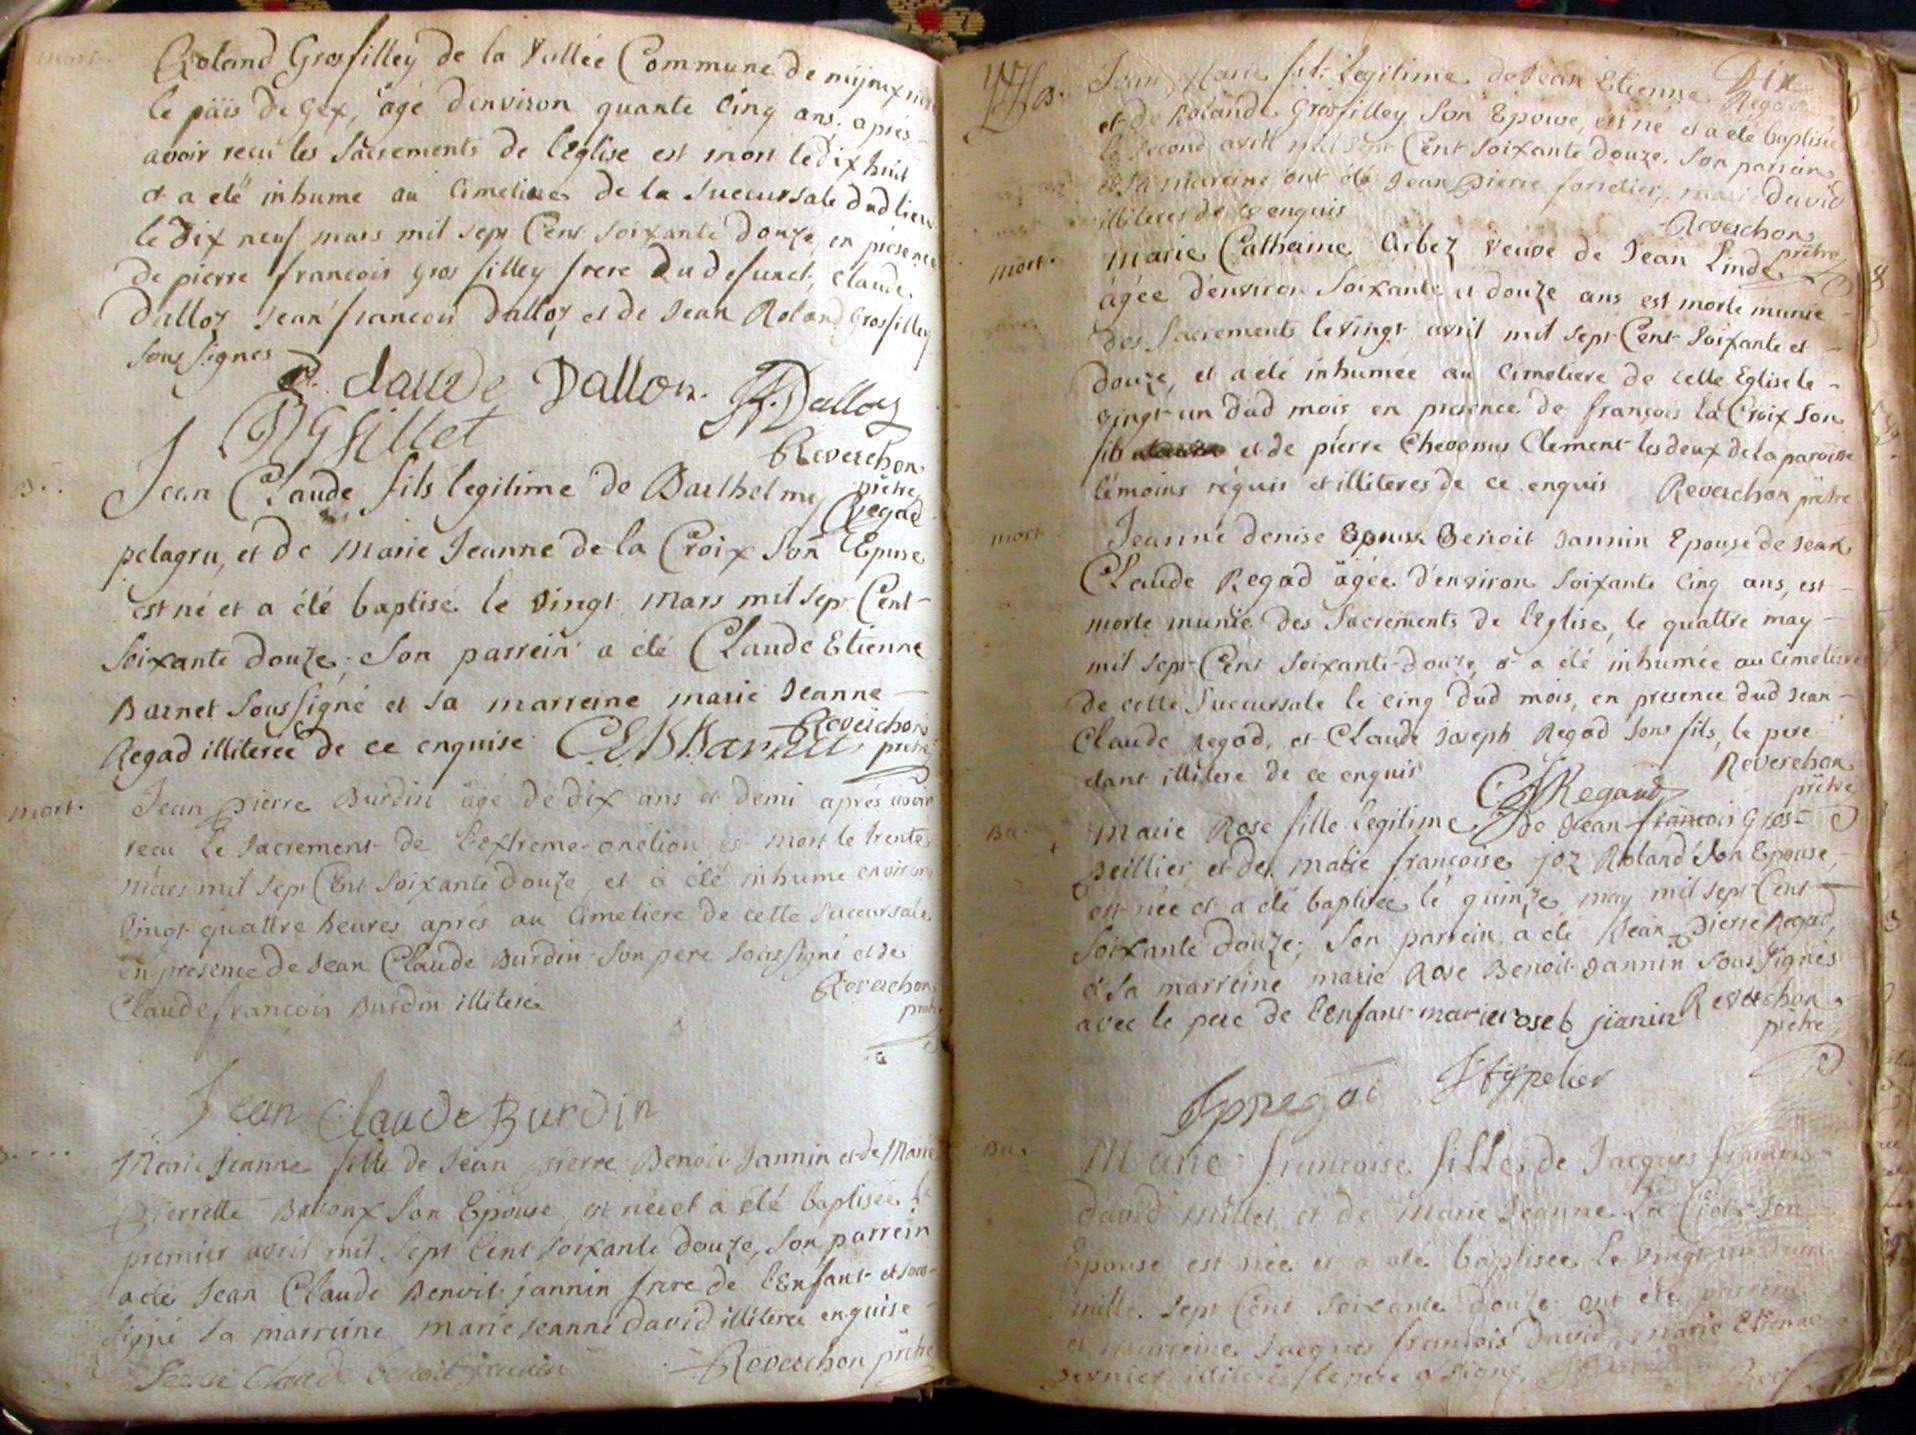 mort.
Roland Grosfilley de la Vallée Commune de mijoux
le päis de Gex, âgé denviron quante Cinq ans. aprés
avoir reçu les Sacrements de l'Eglise est mort le Dix huit
et a eté inhume au Cimetiere de la Succursale dud lieu
le Dix neuf mars mil sept Cent Soixante Douze, en présence
de pierre francois Gros filley frere Du defunct, Claude
Dalloz Jean francois Dalloz et de Jean Roland Grosfilley
sous signes
Claude Dalloz. JF Dalloz
JRGfillet
Reverchon
prêtre
B..
Jean Claude fils legitime de Barthelmy Regad
pelagru, et de Marie Jeanne de la Croix Son Epouse
est né et a été baptisé le Vingt Mars mil sept Cent
Soixante Douze. Son parrein a été Claude Etienne
Barnet Soussigné et sa marreine marie Jeanne
Regad illiteree de ce enquise
Reverchon
prêtre
mort.
Jean pierre Burdin âgé de Dix ans et demi aprés avoir
recu le Sacrement de l'extreme-onction est mort le trente
mars mil sept Cent Soixante Douze, et a été inhume environ
Vingt quattre heures aprés au Cimetiere de cette Succursale
en presence de Jean Claude Burdin Son pere Soussigné et de
Claude francois Burdin illiteré
Reverchon
prêtre
Jean Claude Burdin
Marie Jeanne fille de Jean pierre Benoit Jannin et de Marie
pierrette Bavoux Son Epouse, est née et a été baptisée le
premier avril mil Sept Cent Soixante Douze, Son parrein
a été Jean Claude Benoit jannin frere de l'Enfant et sous
signé Sa marreine marie Jeanne David illiteree enquise
Jean Claude benoit jannin
Reverchon prêtre
Dix
B.
Jean Marie fils legitime de Jean Etienne Regad
et de Rolande Grosfilley Son Epouse, est né et a été baptisé
le second avril mil sept Cent Soixante Douze. Son parrein
et sa mareine ont été Jean pierre forestier, marie David
illiteres de ce enquis
Reverchon
prêtre
mort.
Marie Catherine Arbez Veuve de Jean Linde
âgée d'environ Soixante et douze ans est morte munie
des Sacrements le Vingt avril mil sept Cent Soixante et
Douze, et a été inhumée au Cimetiere de cette Eglise le
vingt un dud mois en presence de francois la Croix Son
fils et de pierre Chevassus Clement les deux de la paroisse
témoins réquis et illiteres de ce enquis Reverchon prêtre
mort
Jeanne denise Benoit Jannin Epouse de Jean
Claude Regad âgée d'environ Soixante Cinq ans, est
morte munie des Sacrements de l'Eglise, le quattre may
mil Sept Cent Soixante-douze, et a été inhumée au Cimetiere
de cette Succursale le Cinq dud mois, en presence dud Jean
Claude Regad, et Claude Joseph Regad Sons fils, le pere
etant illitere de ce enquis
CJRegaud
Reverchon
prêtre
Ba.
Marie Rose fille legitime de Jean francois Gros
peillier, et de marie francoise joz Roland Son Epouse,
est née et a été baptisée le quinze may mil sept Cent
Soixante Douze; Son parrein a été Jean pierre Regad,
et Sa marreine marie Rose Benoit Jannin Sous signés
avec le pere de l'Enfant marie rose b jianin
Reverchon
prêtre
Jpregad
Ba.
Marie francoise fille de Jacques francois
David Millet et de Marie Jeanne La Croix Son
Epouse est née et a été baptisée le Vingt un
mille Sept Cent Soixante Douze ont été parrein
et marreine Jacques francois David, marie Etienne
dernier illiteré le pere a signé